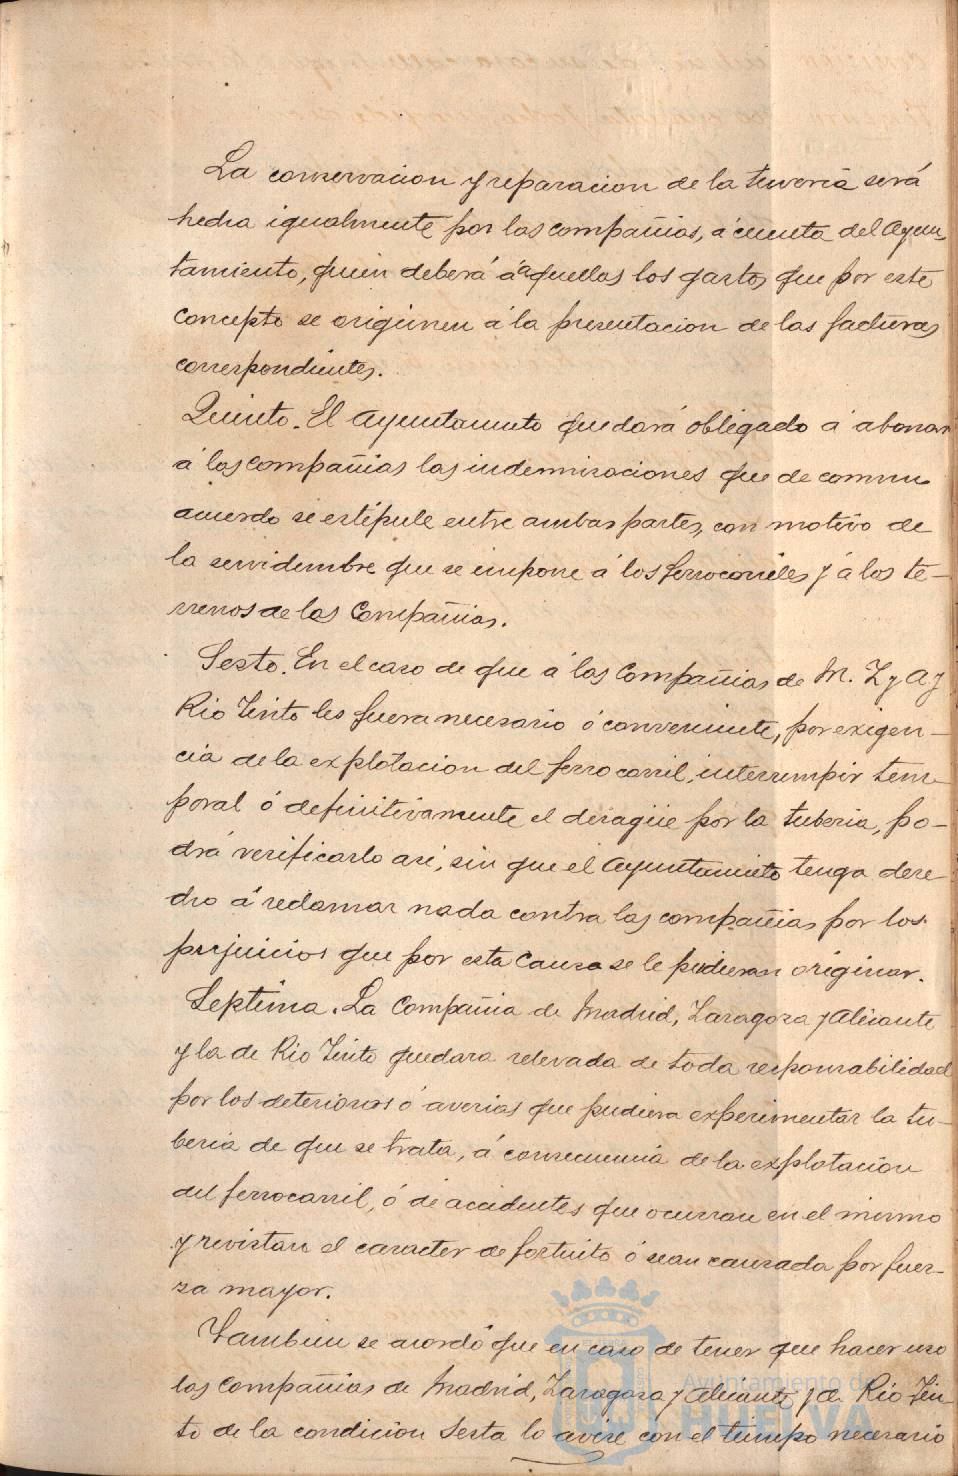 La conservacion y reparacion de la tuveria será
hecha igualmente por las compañias, á cuenta del Ayun-
tamiento, quien deberá á aquellas los gastos que por este
concepto se originen á la presentacion de las facturas
correspondientes.
Quinto. El Ayuntamiento quedará obligado á abonar
á las compañias las indemnizaciones que de comun
acuerdo se estipule entre ambas partes, con motivo de
la servidumbre que se impone á los ferrocarriles y á los te-
rrenos de las Compañias.
Sesto. En el caso de que á las Compañias de M. Z y A y
Rio Tinto les fuera necesario ó conveniente, por exigen-
cia de la explotacion del ferrocarril, interrumpir tem-
poral ó definitivamente el desagüe por la tuberia, po-
drá verificarlo asi, sin que el Ayuntamiento tenga dere
cho á reclamar nada contra las compañias por los
prejuicios que por esta causa se le pudieran originar.
Septima. La Compañia de Madrid, Zaragoza y Alicante
y la de Rio Tinto quedara relevada de toda responsabilidad
por los deterioros ó averias que pudiera experimentar la tu-
beria de que se trata, á consecuencia de la explotacion
del ferrocarril, ó de accidentes que ocurran en el mismo
y revistan el caracter de fortuito ó sean causada por fuer-
za mayor.
Tambien se acordó que en caso de tener que hacer uso
las Compañias de Madrid, Zaragoza y Alicante y de Rio Tin-
to de la condicion sesta lo avise con el tiempo necesario
Ayuntamiento de
HUELVA